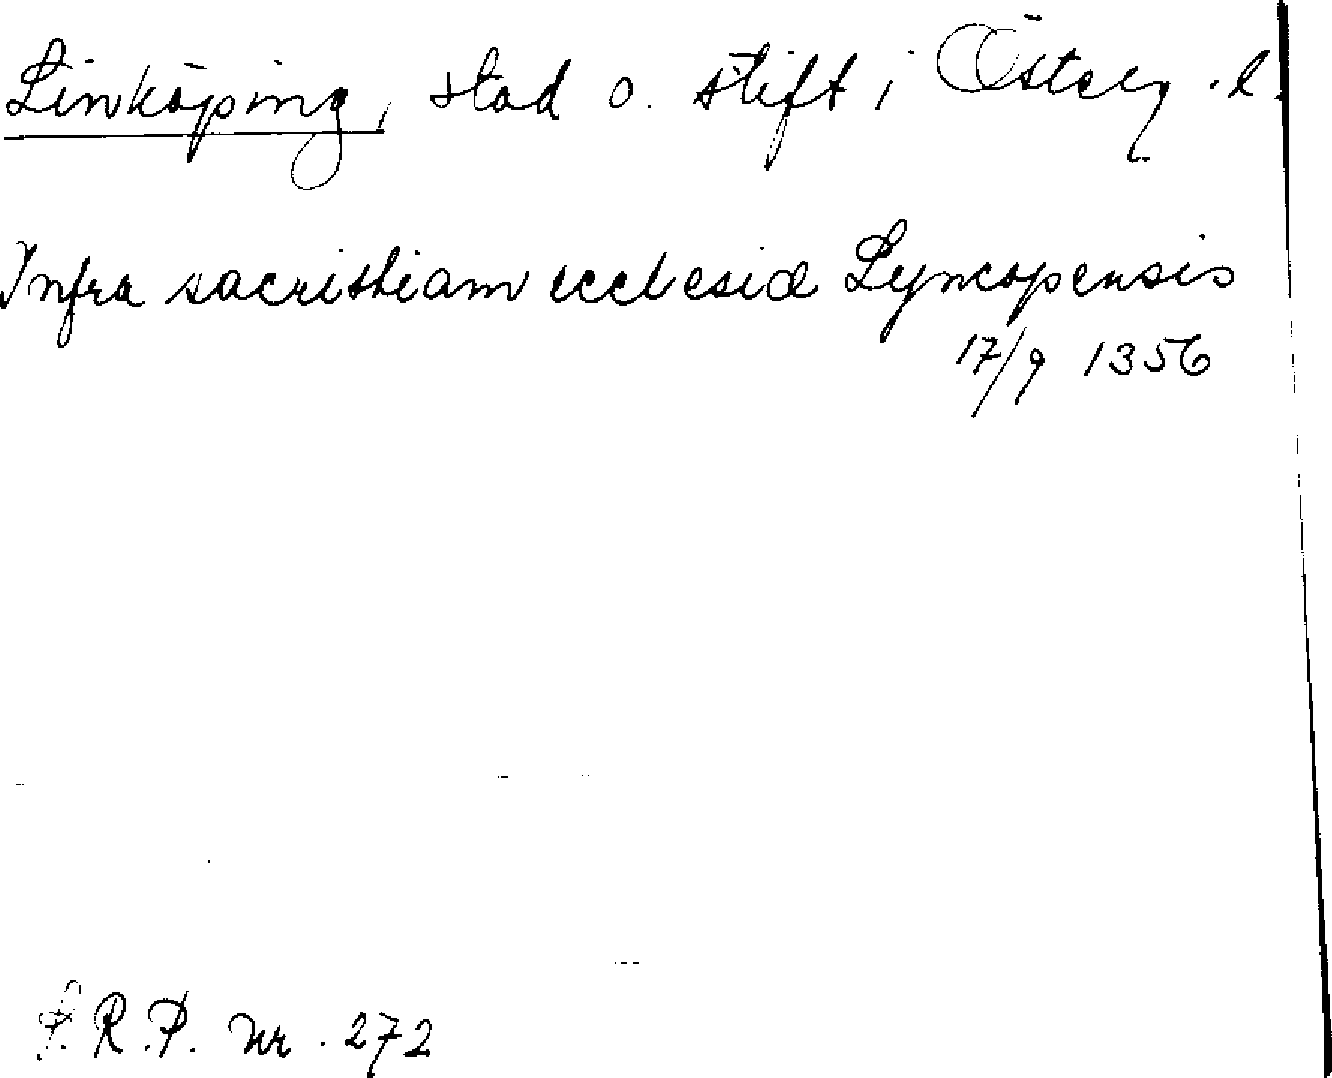 Linköping, stad o. stift i Österg.l.
Infra sacristiam ecclesiæ Lyncopensis
17/9 1356
S.R.P. nr. 272